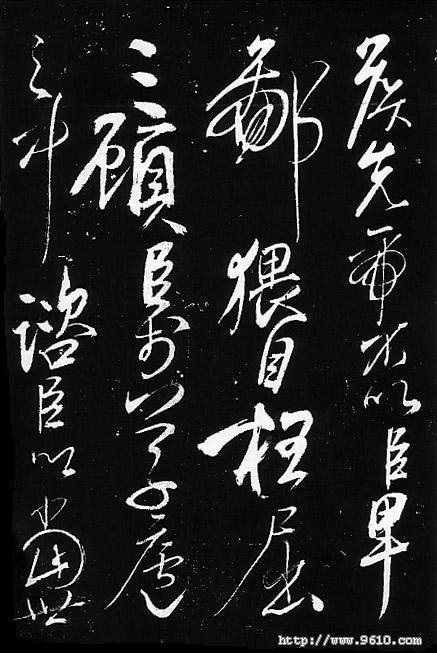 侯先帝不以臣卑
鄙猥自枉屈
三顧臣於草廬
之中諮臣以當世
http://www.9610.com